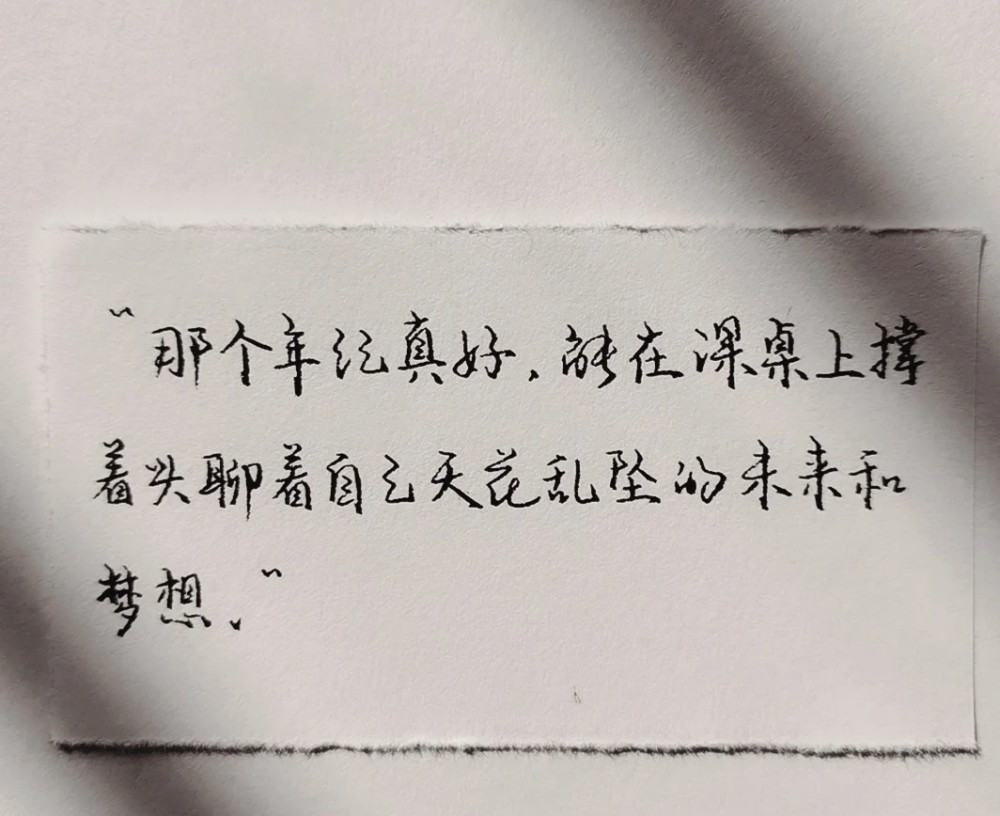 “那个年纪真好,能在课桌上撑
着头聊着自己天花乱坠的未来和
梦想、”